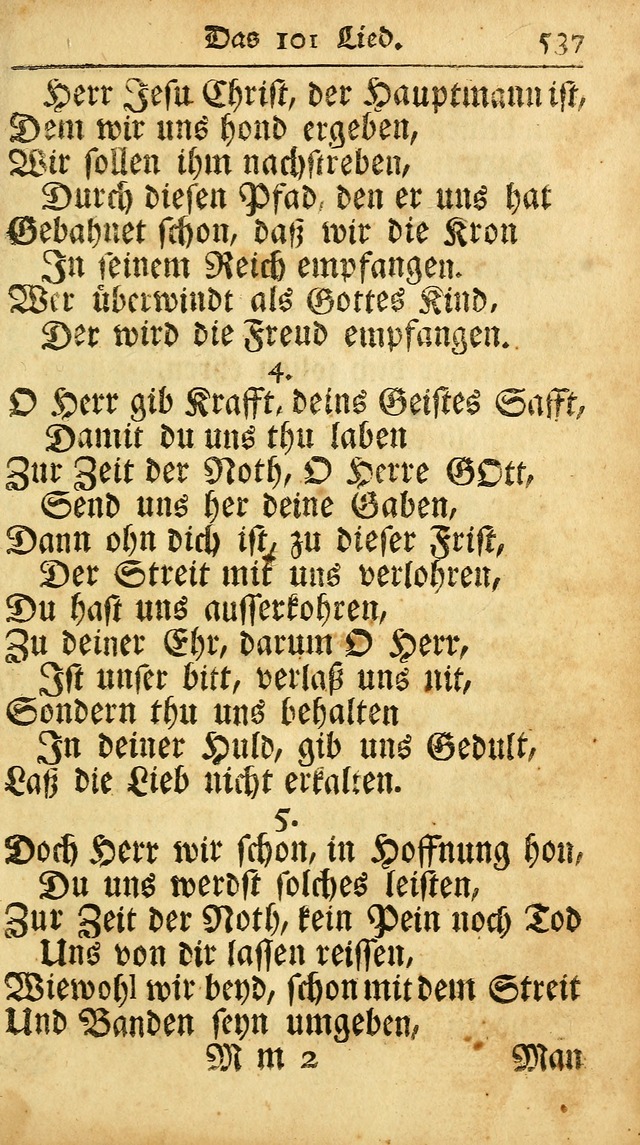 Das 101 Lied. 537
Herr Jesu Christ, der Hauptmann ist,
Dem wir uns hond ergeben,
Wir sollen ihm nachstreben,
Durch diesen Pfad, den er uns hat
Gebahnet schon, daß wir die Kron
In seinem Reich empfangen.
Wer überwindt als Gottes Kind,
Der wird die Freud empfangen.
4.
O Herr gib Krafft, deins Geistes Safft,
Damit du uns thu laben
Zur Zeit der Noth, O Herre GOtt,
Send uns her deine Gaben,
Dann ohn dich ist, zu dieser Frist,
Der Streit mit uns verlohren,
Du hast uns ausserkohren,
Zu deiner Ehr, darum O Herr,
Ist unser bitt, verlaß uns nit,
Sondern thu uns behalten
In deiner Huld, gib uns Gedult,
Laß die Lieb nicht erkalten.
5.
Doch Herr wir schon, in Hoffnung hon,
Du uns werdst solches leisten,
Zur Zeit der Noth, kein Pein noch Tod
Uns von dir lassen reissen,
Wiewohl wir beyd, schon mit dem Streit
Und Banden seyn umgeben,
M m 2 Man